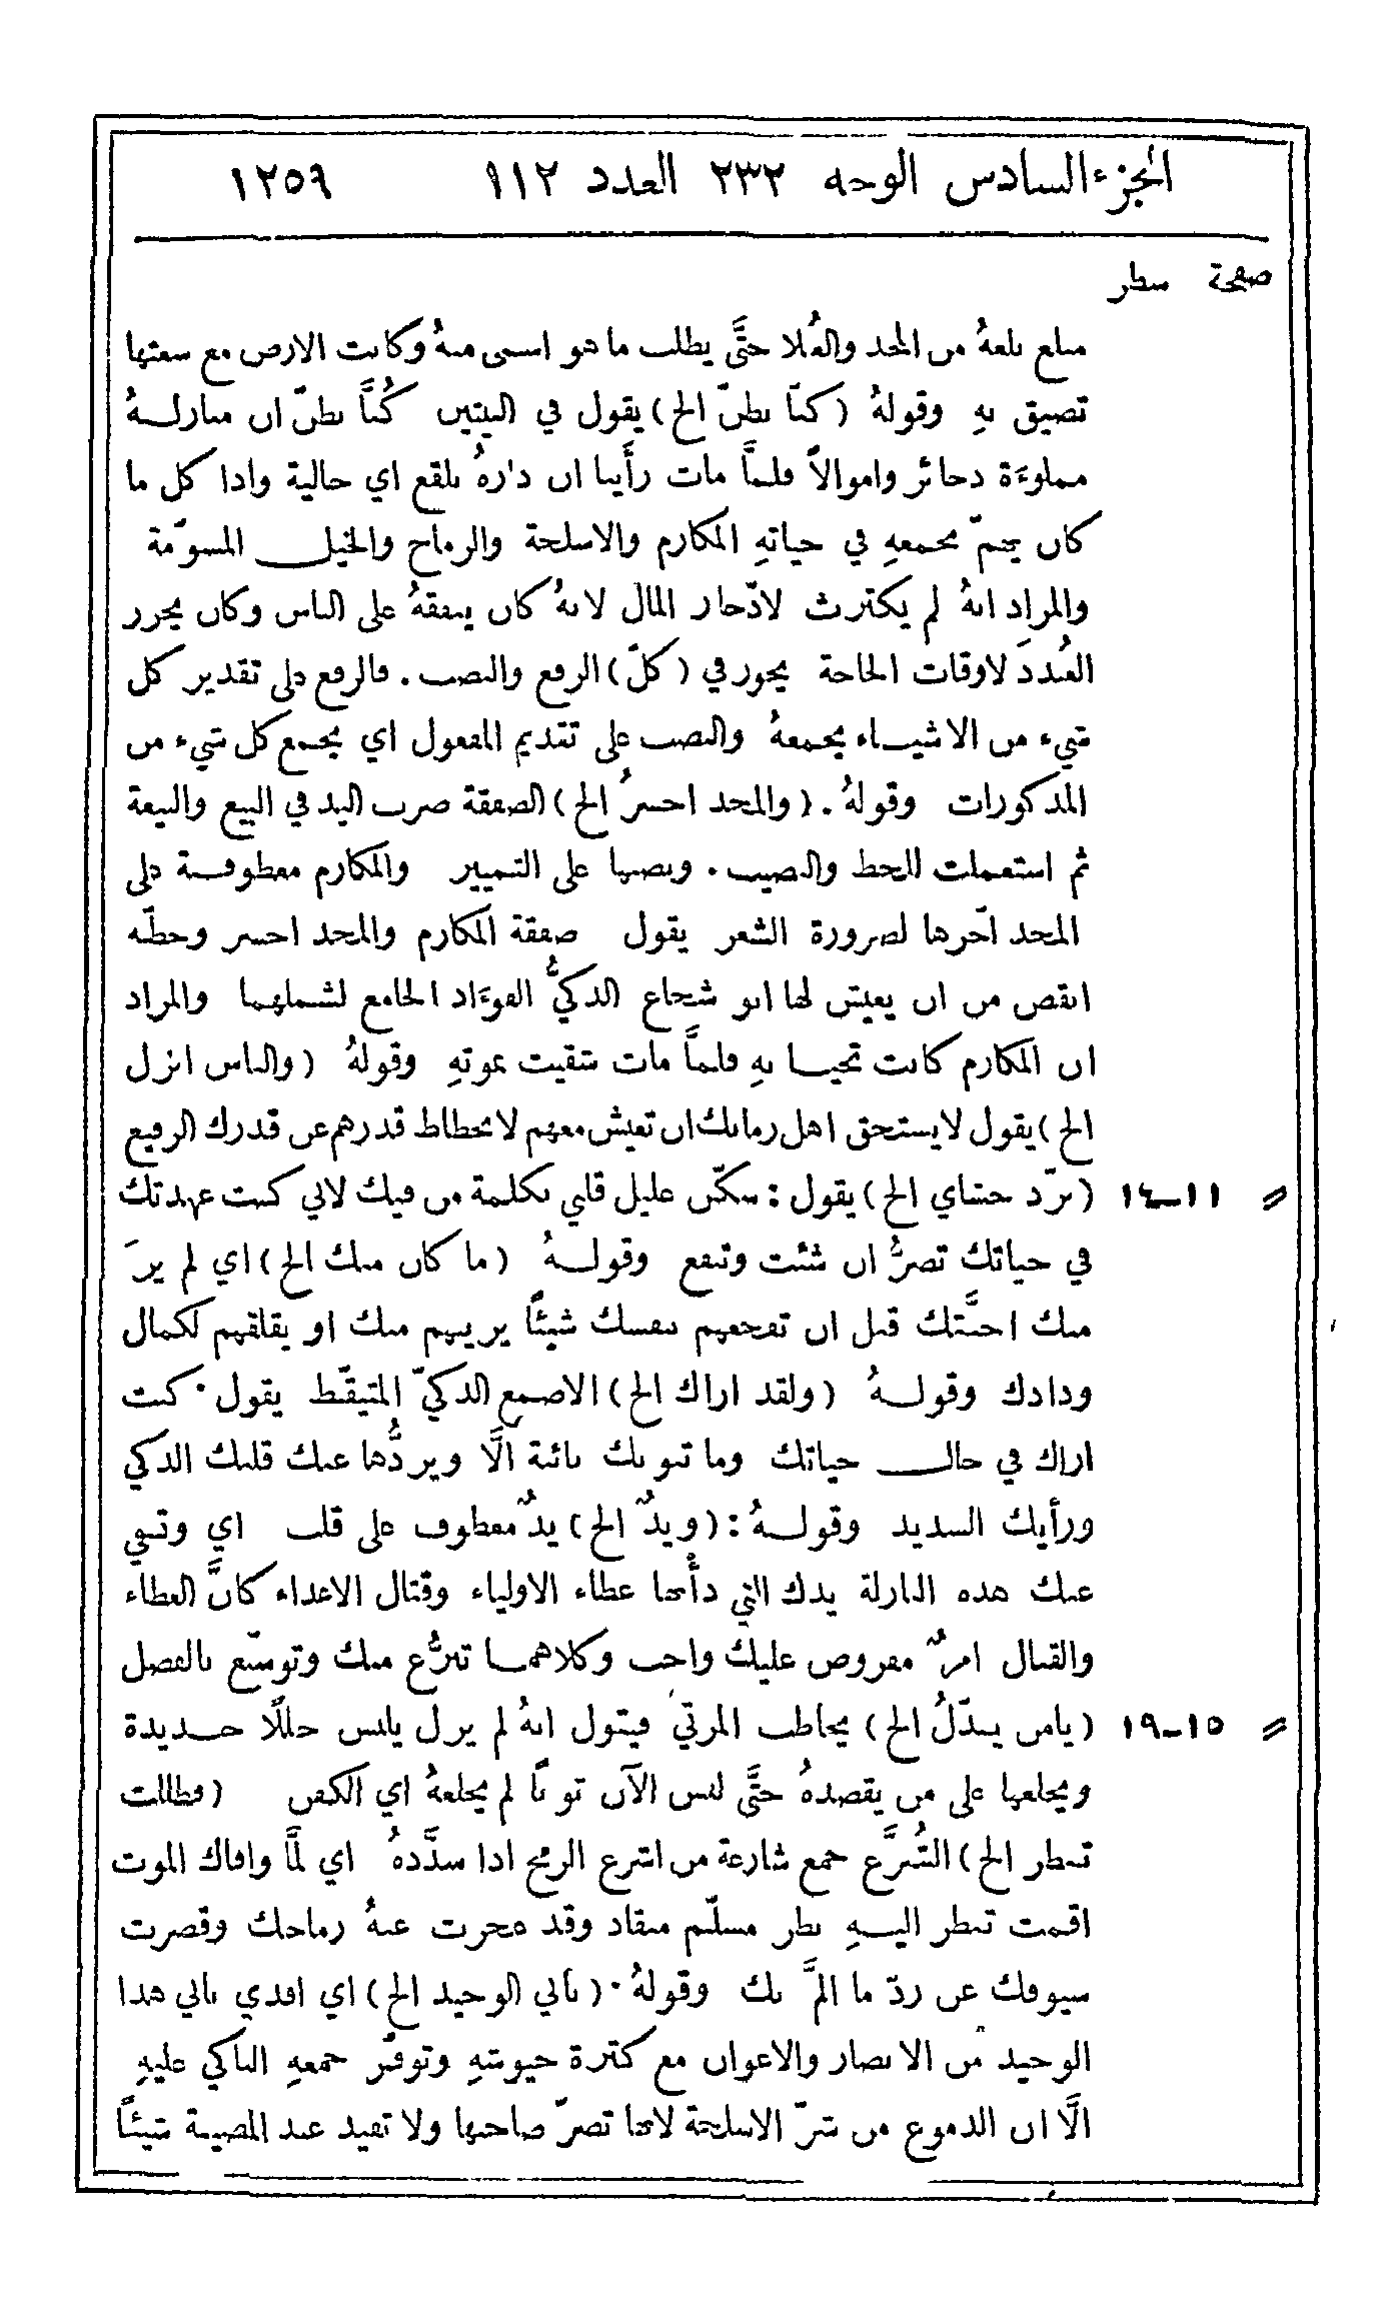 الجزء السادس الوجه ٢٣٢ العدد ١١٢ ١٢٥٩
صفحة سطر
مبلغ بلغهُ من المجد والعُلا حتَّى يطلب ما هو اسمى منهُ وكانت الارض مع سعتها
تضيق بهِ وقولهُ (كنّا نظنّ الخ) يقول في البيتين كُنَّا نظنّ ان منازلـهُ
مملوءَة ذخائر واموالاً فلمَّا مات رأَينا ان دارهُ بلقع اي خالية واذا كل ما
كان يهتمّ بجمعهِ في حياتهِ المكارم والاسلحة والرماح والخيل المسوَّمة
والمراد انهُ لم يكترث لادّخار المال لانهُ كان ينفقهُ على الناس وكان يحرز
العُددَ لاوقات الحاجة يجوز في (كلّ) الرفع والنصب. فالرفع على تقدير كل
شيء من الاشياء يجمعهُ والنصب على تقديم المفعول اي يجمع كل شيء من
المذكورات وقولهُ. (والمجد اخسرُ الخ) الصفقة ضرب اليد في البيع والبيعة
ثم استعملت للحظ والنصيب. ونصبها على التمييز والمكارم معطوفة على
المجد اخّرها لضرورة الشعر يقول صفقة المكارم والمجد اخسر وحظّه
انقص من ان يعيش لها ابو شجاع الذكيُّ الفوءَاد الجامع لشملهما والمراد
ان المكارم كانت تحيا بهِ فلمَّا مات شقيت بموتهِ وقولهُ (والناس انزل
الخ) يقول لا يستحق اهل زمانك ان تعيش معهم لانحطاط قدرهم عن قدرك الرفيع
〃 ١١-١٤ (برّد حشاي الخ) يقول: سكّن عليل قلبي بكلمة من فيك لاني كنت عهدتك
في حياتك تضرُّ ان شئت وتنفع وقولـهُ (ما كان منك الخ) اي لم يرَ
منك احبَّتك قبل ان تفجعهم بنفسك شيئًا يريبهم منك او يقلقهم لكمال
ودادك وقولـهُ (ولقد اراك الخ) الاصمع الذكيّ المتيقّظ يقول. كنت
اراك في حال حياتك وما تنوبك نائبة الَّا ويردُّها عنك قلبك الذكي
ورأيك السديد وقولـهُ: (ويدٌ الخ) يدٌ معطوف على قلب اي وتنفي
عنك هذه النازلة يدك التي دأْبها عطاء الاولياء وقتال الاعداء كانَّ العطاء
والقتال امرٌ مفروض عليك واجب وكلاهما تبرُّع منك وتوسّع بالفضل
〃 ١٥-١٩ (يا من يبدّلُ الخ) يخاطب المرثي فيقول انهُ لم يزل يلبس حللًا جـديدة
ويخلعها على من يقصدهُ حتَّى لبس الآن ثوبًا لم يخلعهُ اي الكفن (فظللت
تنظر الخ) الشُرَّع جمع شارعة من اشرع الرمح اذا سدَّدهُ اي لمَّا وافاك الموت
اقمت تنظر اليـهِ نظر مسلّم منقاد وقد عجزت عنهُ رماحك وقصرت
سيوفك عن ردّ ما المَّ بك وقولهُ. (بأبي الوحيد الخ) اي افدي بابي هذا
الوحيد من الانصار والاعوان مع كثرة جيوشهِ وتوفّر جمعهِ الباكي عليهِ
الَّا ان الدموع من شرّ الاسلحة لانها تضرّ صاحبها ولا تفيد عند المصيبة شيئاً